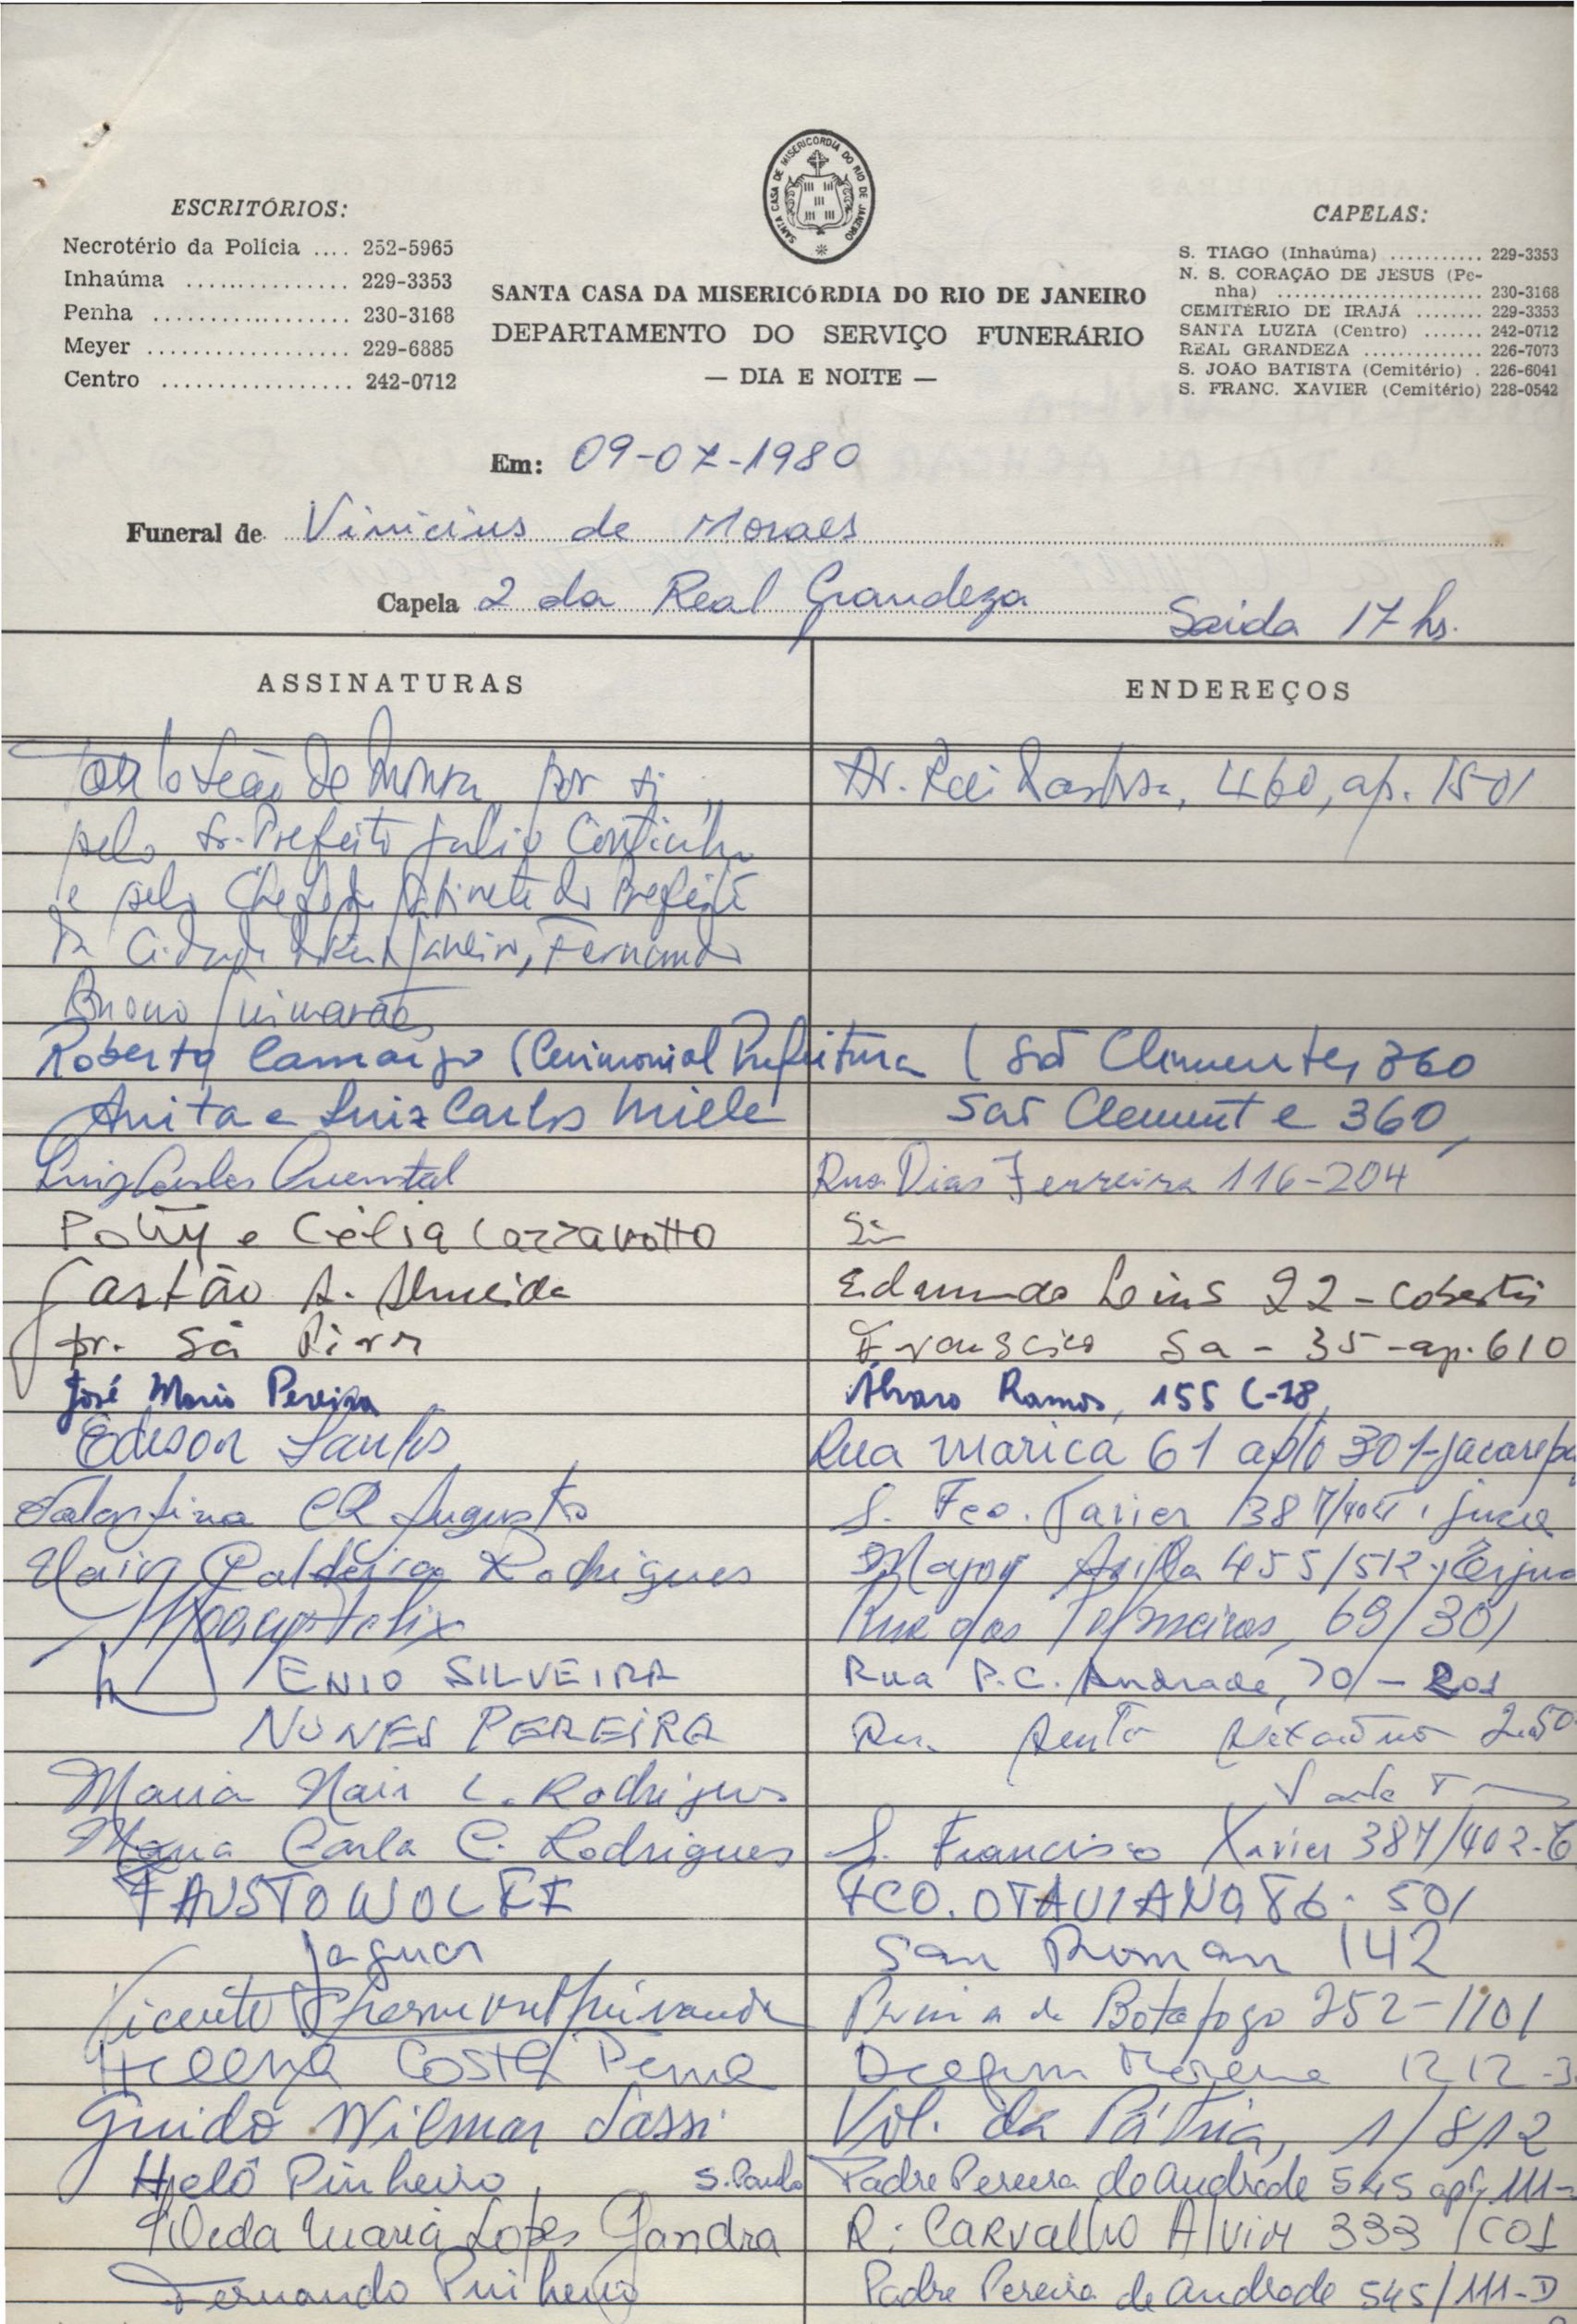 SANTA CASA DE MISERICORDIA DO RIO DE JANEIRO
ESCRITÓRIOS:
Necrotério da Polícia .... 252-5965
Inhaúma ............... 229-3353
Penha .................. 230-3168
Meyer ................... 229-6885
Centro .................. 242-0712
SANTA CASA DA MISERICÓRDIA DO RIO DE JANEIRO
DEPARTAMENTO DO SERVIÇO FUNERÁRIO
— DIA E NOITE —
CAPELAS:
S. TIAGO (Inhaúma) ........... 229-3353
N. S. CORAÇÃO DE JESUS (Pe-
nha) ........................ 230-3168
CEMITÉRIO DE IRAJÁ ........ 229-3353
SANTA LUZIA (Centro) ....... 242-0712
REAL GRANDEZA .............. 226-7073
S. JOAO BATISTA (Cemitério) . 226-6041
S. FRANC. XAVIER (Cemitério) 228-0542
Em: 09-07-1980
Funeral de Vinicius de Moraes
Capela 2 da Real Grandeza Saida 17 hs.
ASSINATURAS ENDEREÇOS
de Moura por si Av. 460, ap. 1501
pelo Sr. Prefeito Julio Coutinho
e pelo Chefe de Gabinete do Prefeito
da Cidade Janeiro, Fernando
Bueno Guimarães
Roberto Camargo (Cerimonial Prefeitura ( São Clemente, 360
Anita e Luiz Carlos Miele São Clemente 360,
Luiz Carlos Rua Dias Ferreira 116-204
e Célia Lazzarotto
Gastão A. Almeida Edmundo Lins 22 -
Sá 35 - ap. 610
José Mario Pereira Álvaro Ramos, 155 C-18,
Edison Santos Rua Marica 61 apto 301-Jacarepa
Augusto S. Fco. Xavier 387/402
Rodrigues 455/512
Moacyr Felix Rua das Palmeiras, 69/301
ENIO SILVEIRA Rua P.C. Andrade, 70 - 201
NUNES PEREIRA
Maria Nair C. Rodrigues
Maria Carla C. Rodrigues S. Francisco Xavier 387/402-T
FAUSTO WOLFF FCO. OTAVIANO 86 - 501
Jaguar San Roman 142
Vicente Praia de Botafogo 252-1101
Costa 1212
Guido Wilmar Sassi Vol. da Pátria, 1/812
Helô Pinheiro S. Paulo Padre Pereira de Andrade 545 apt 111-
Maria Lopes Gandra R: CARVALHO AlviM 333 / C01
Fernando Pinheiro Padre Pereira de Andrade 545/111-D